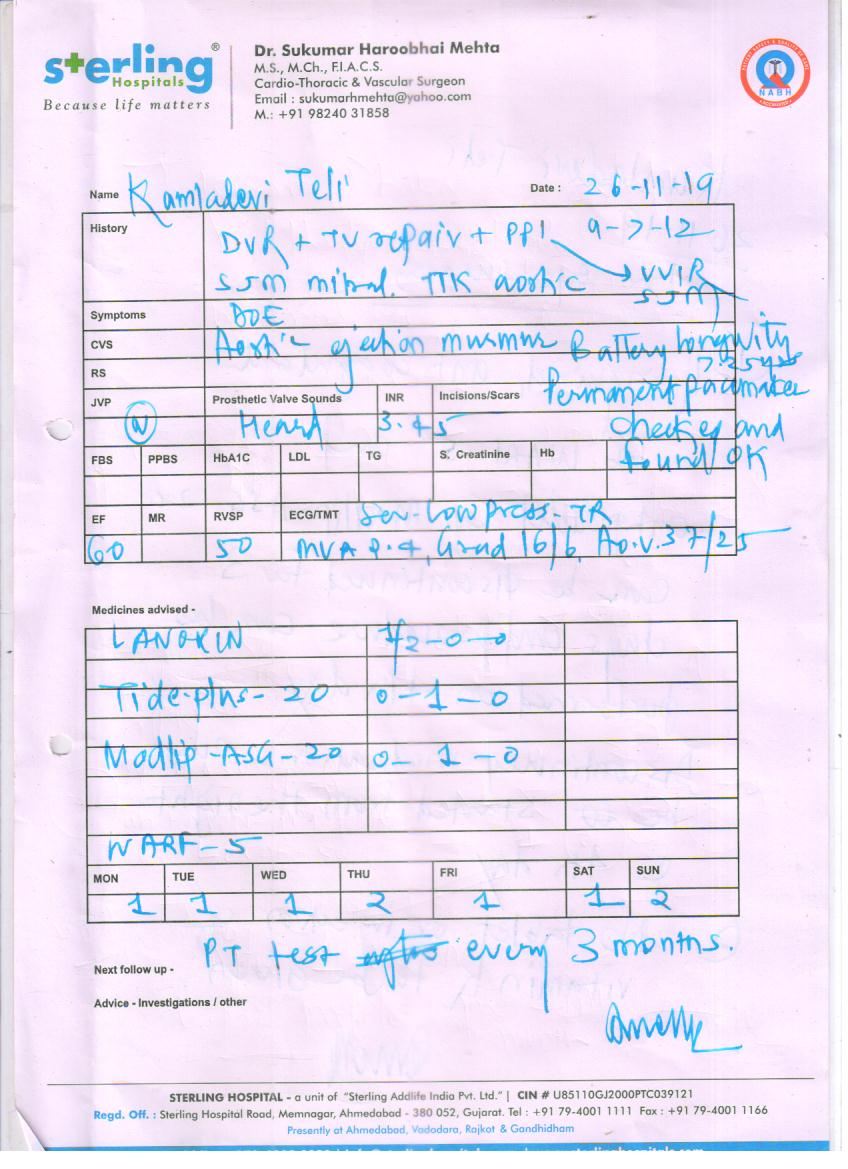 sterling®
Hospitals
Because life matters
Dr. Sukumar Haroobhai Mehta
M.S., M.Ch., F.I.A.C.S.
Cardio-Thoracic & Vascular Surgeon
Email : sukumarhmehta@yahoo.com
M.: +91 98240 31858
NABH
Name Kamladevi Teli Date : 26-11-19
History
DVR + TV repair + PPI 9-7-12
SJM mitral. TTK aortic → VVIR
SJM
Symptoms DOE
CVS Aortic ejection murmur Battery longivity
RS 7.25 yrs
JVP Prosthetic Valve Sounds INR Incisions/Scars Permanent pacemaker
N Heard 3.45 checked and
found OK
FBS PPBS HbA1C LDL TG S. Creatinine Hb
EF MR RVSP ECG/TMT Sev. Low press. TR
60 50 MVA 2.4, Grad 16/6, Ao.V. 37/25
Medicines advised -
LANOXIN 1/2-0-0
Tide-plus-20 0-1-0
Modlip-ASG-20 0-1-0
WARF-5
MON TUE WED THU FRI SAT SUN
1 1 1 2 1 1 2
Next follow up - PT test every 3 months.
Advice - Investigations / other
STERLING HOSPITAL - a unit of "Sterling Addlife India Pvt. Ltd." | CIN # U85110GJ2000PTC039121
Regd. Off. : Sterling Hospital Road, Memnagar, Ahmedabad - 380 052, Gujarat. Tel : +91 79-4001 1111 Fax : +91 79-4001 1166
Presently at Ahmedabad, Vadodara, Rajkot & Gandhidham